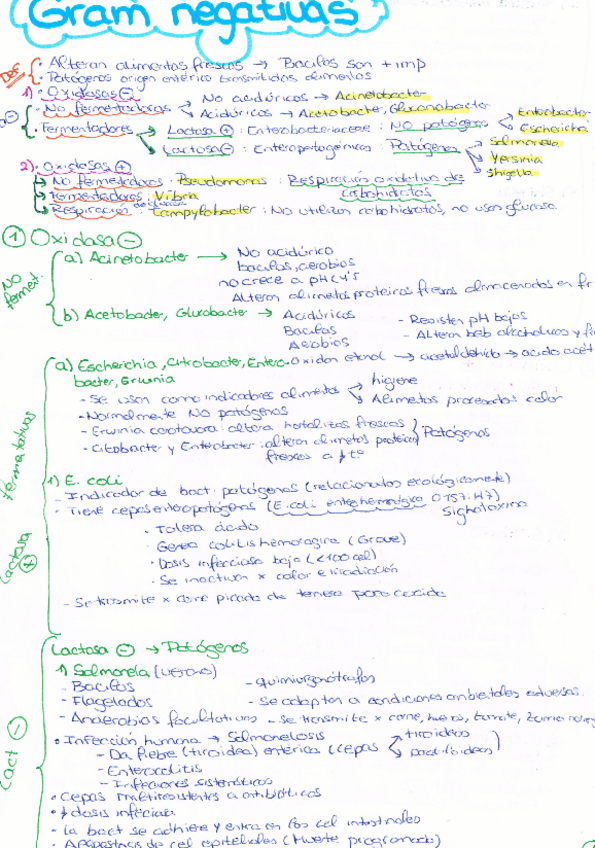 Gram negativas
Def · Alteran alimentos frescos → Bacilos son + imp
· Patógenos origen entérico transmitidos alimentos
1) · Oxidasas ⊖
· No fermentadoras No acidúricos → Acinetobacter
Acidúricos → Acetobacter, Gluconobacter
· Fermentadores → Lactosa ⊕ : Enterobacteriaceae : No patógenos Enterobacter
Escherichia
→ Lactosa ⊖ : Enteropatogénicos : Patógenos Salmonela
Yersinia
Shigella
2) · Oxidasas ⊕
→ No fermentadoras : Pseudomonas : Respiración oxidativa de carbohidratos
→ Fermentadoras : Vibrio
→ Respiración : Campylobacter : No utilizan carbohidratos, no usan glucosa
① Oxidasa ⊖
No ferment.
a) Acinetobacter → No acidúrico
bacilos, aerobios
no crece a pH < 4's
Alteran alimentos proteicos frescos almacenados en fr
b) Acetobacter, Glucobacter → Acidúricos - Resisten pH bajos
Bacilos - Alteran beb alcoholicas y f
Aerobios
Fermentativas
Lactosa ⊕
a) Escherichia, Citrobacter, Entero- Oxidan etanol → acetaldehido → acido acét
bacter, Erwinia
- Se usan como indicadores alimentos higiene
Alimentos procesados calor
- Normalmente NO patógenos
- Erwinia carotovora : altera hortalizas frescas
- Citobacter y Enterobacter : alteran alimetos proteicos Patógenos
frescos a ↓ tº
1) E. coli
- Indicador de bact. patógenas (relacionados ecológicamente)
- Tiene cepas enteropatógenas (E. coli enterohemorrágica O157:H7)
Sighatoxina
· Tolera ácido
· Genera colitis hemorragica (Grave)
· Dosis infecciosa baja (<100 cel)
· Se inactivan x calor e irradiación
- Se trasmite x carne picada de ternera poco cocida
Lact ⊖
Lactosa ⊖ → Patógenos
1) Salmonela (verano)
- Bacilos - quimiorganótrofos
- Flagelados - Se adaptan a condiciones ambientales adversas.
- Anaerobios facultativos - se transmite x carne, huevos, tomate,
· Infección humana → Salmonelosis
- Da fiebre (tiroidea) entérica (cepas tiroideas
paratifoideas)
- Enterocolitis
- Infecciones sistemáticas
· Cepas multiresistentes a antibióticos
· ↓ dosis infeciosa
- La bact se adhiere y entra en las cel intestinales
- Apopostosis de cel epiteliales (Muerte programada)